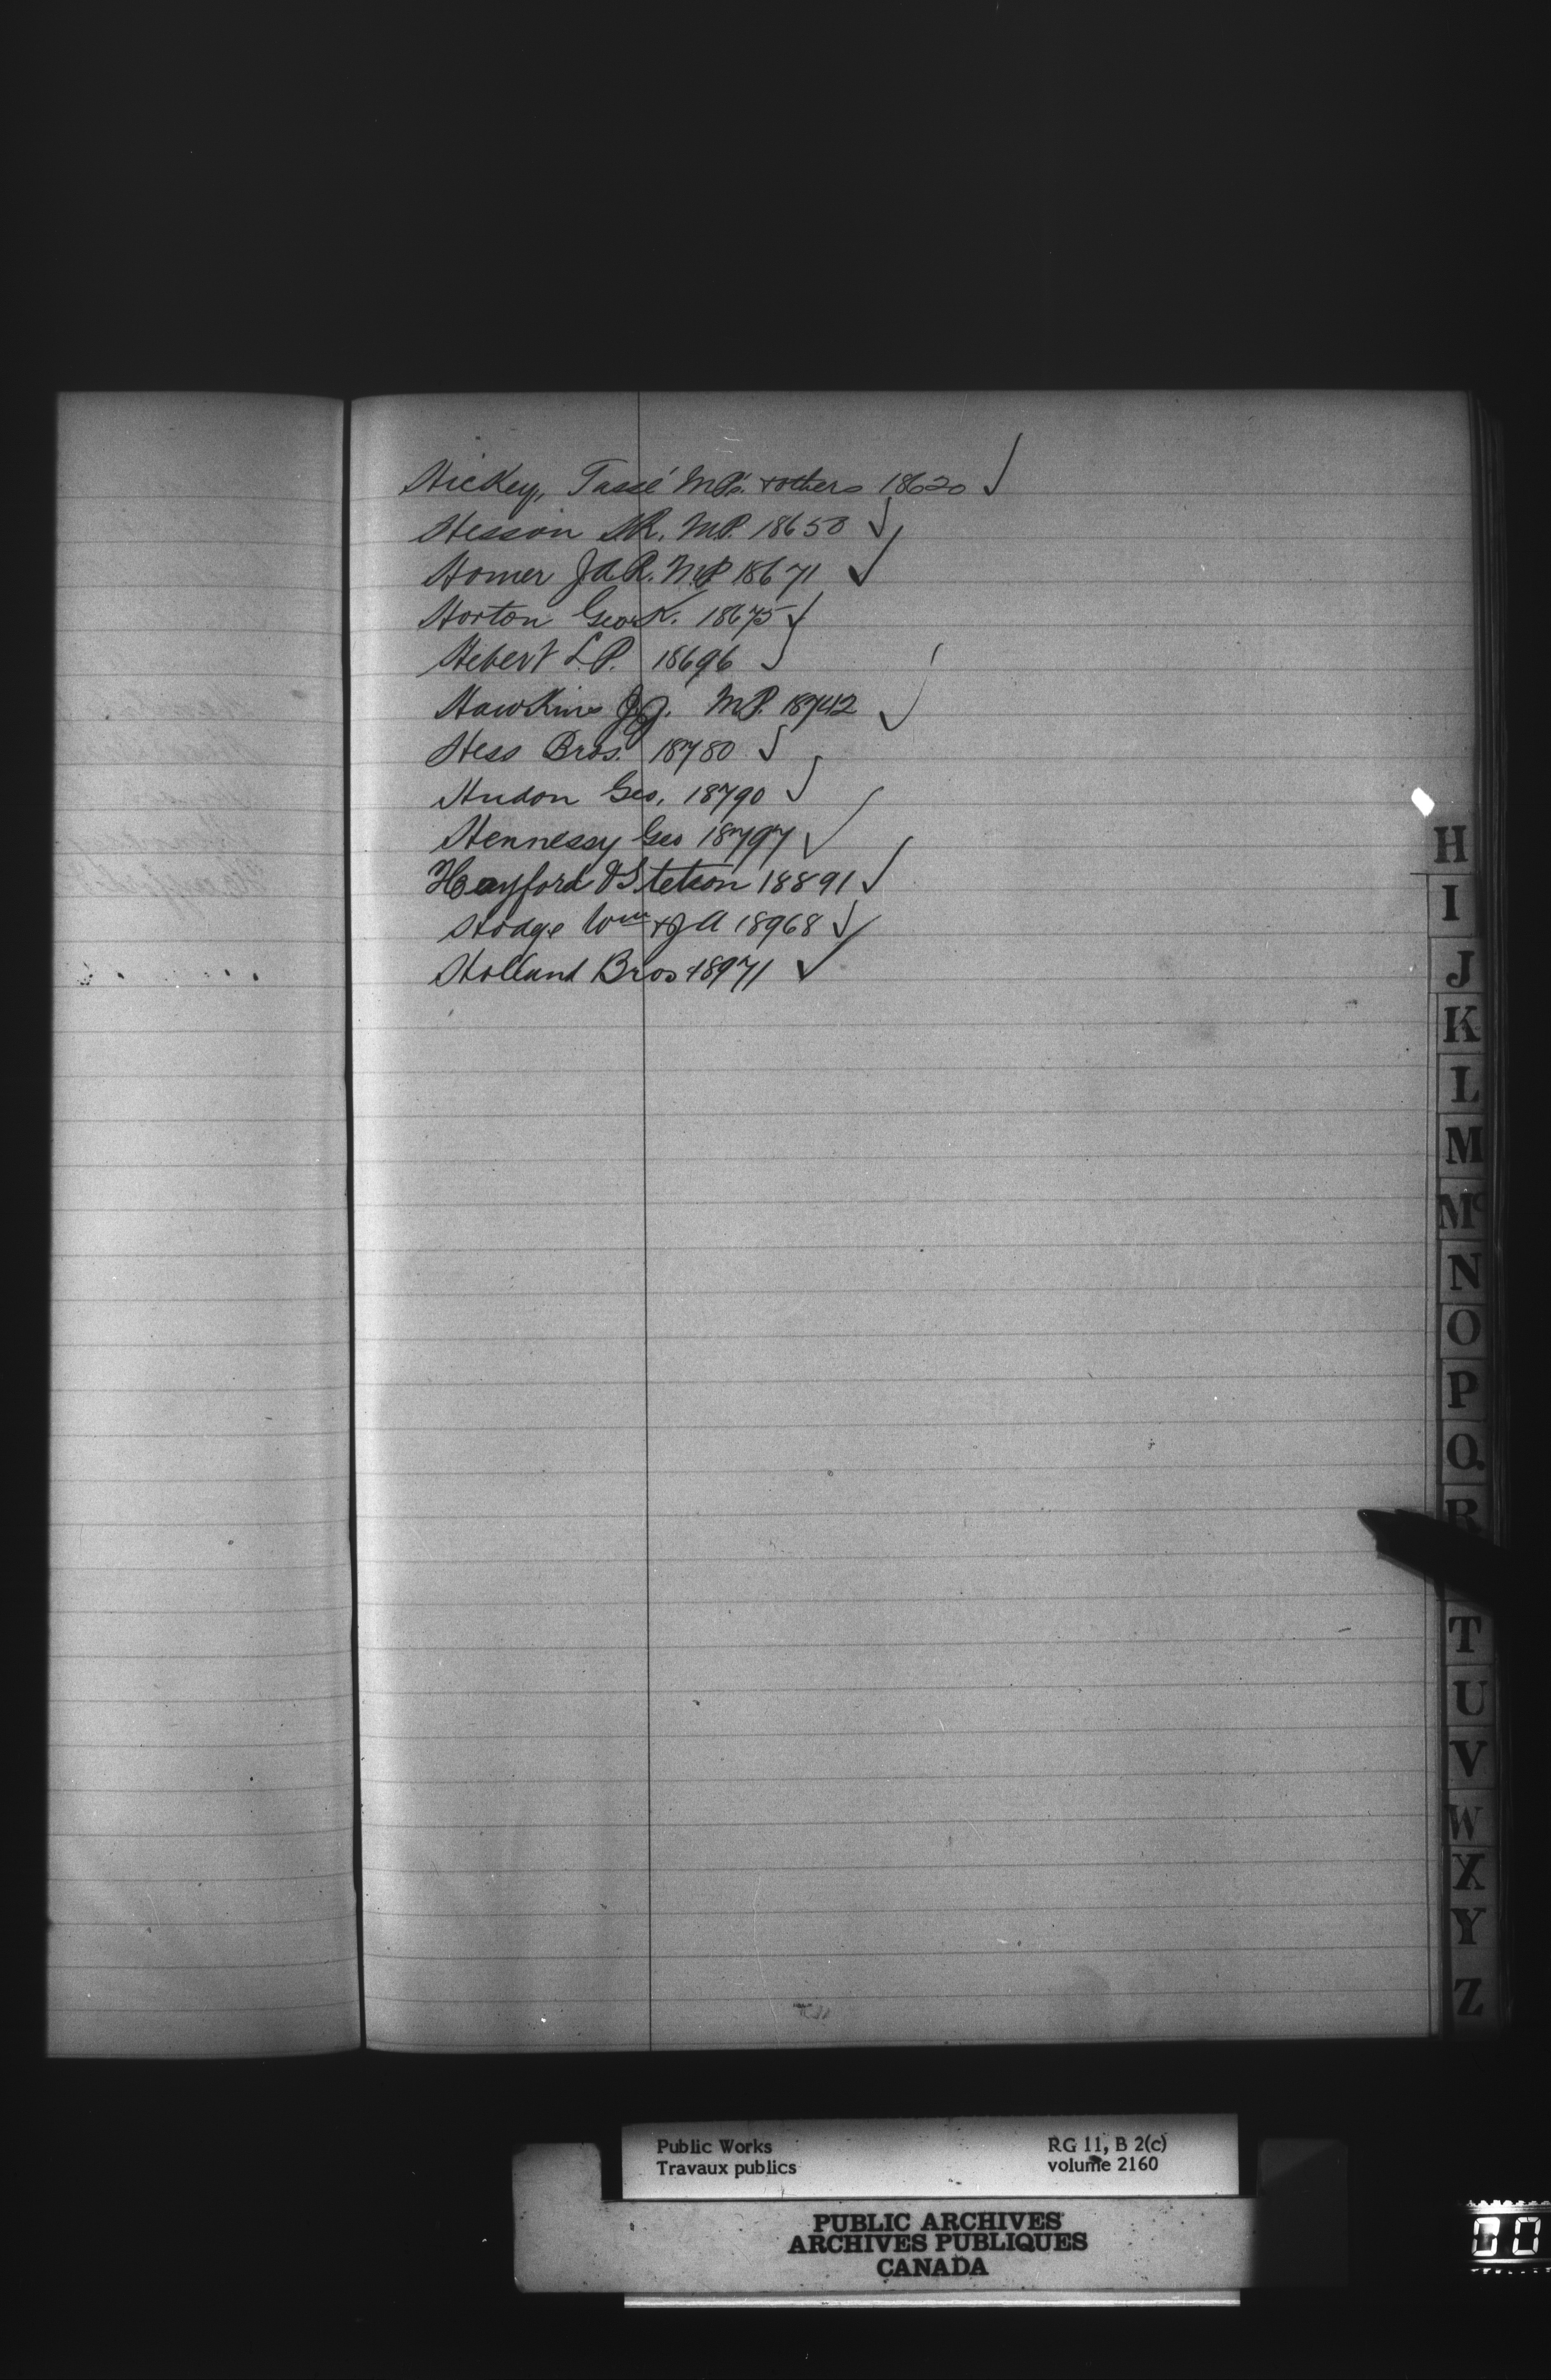 Hickey, Tassé M.P's. & others 18620 ✓
Hesson S.R. M.P. 18650 ✓
Homer J.A.R. M.P 18671 ✓
Horton Geo K. 18675 ✓
Hebert L.P. 18696 ✓
Hawkins J.J. M.P. 18742 ✓
Hess Bros. 18780 ✓
Hudon Geo. 18790 ✓
Hennessy Geo 18797 ✓
Hayford & Stetson 18891 ✓
Hodge Wm & J A 18968 ✓
Holland Bros 18971 ✓
H
I
J
K
L
M
Mc
N
O
P
Q
R
T
U
V
W
X
Y
Z
Public Works RG 11, B 2(c)
Travaux publics volume 2160
PUBLIC ARCHIVES
ARCHIVES PUBLIQUES
CANADA
00